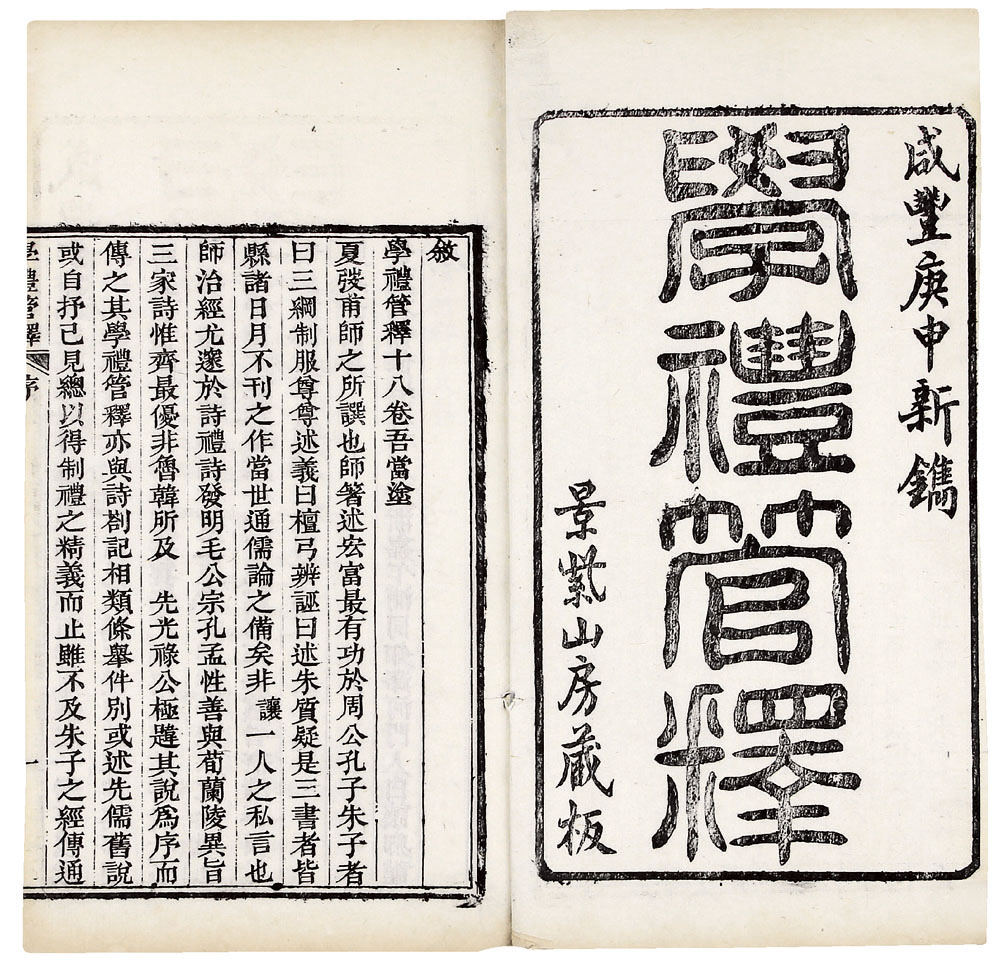 咸豐庚申新鐫
學禮管釋
景紫山房藏板
敘
學禮管釋十八卷吾當塗
夏弢甫師之所譔也師箸述宏富最有功於周公孔子朱子者
曰三綱制服尊尊述義曰檀弓辨誣曰述朱質疑是三書者皆
縣諸日月不刊之作當世通儒論之備矣非讓一人之私言也
師治經尤邃於詩禮詩發明毛公宗孔孟性善與荀蘭陵異旨
三家詩惟齊最優非魯韓所及　先光祿公極韙其說為序而
傳之其學禮管釋亦與詩劄記相類條舉件別或述先儒舊說
或自抒己見總以得制禮之精義而止雖不及朱子之經傳通
學禮管釋　序　一